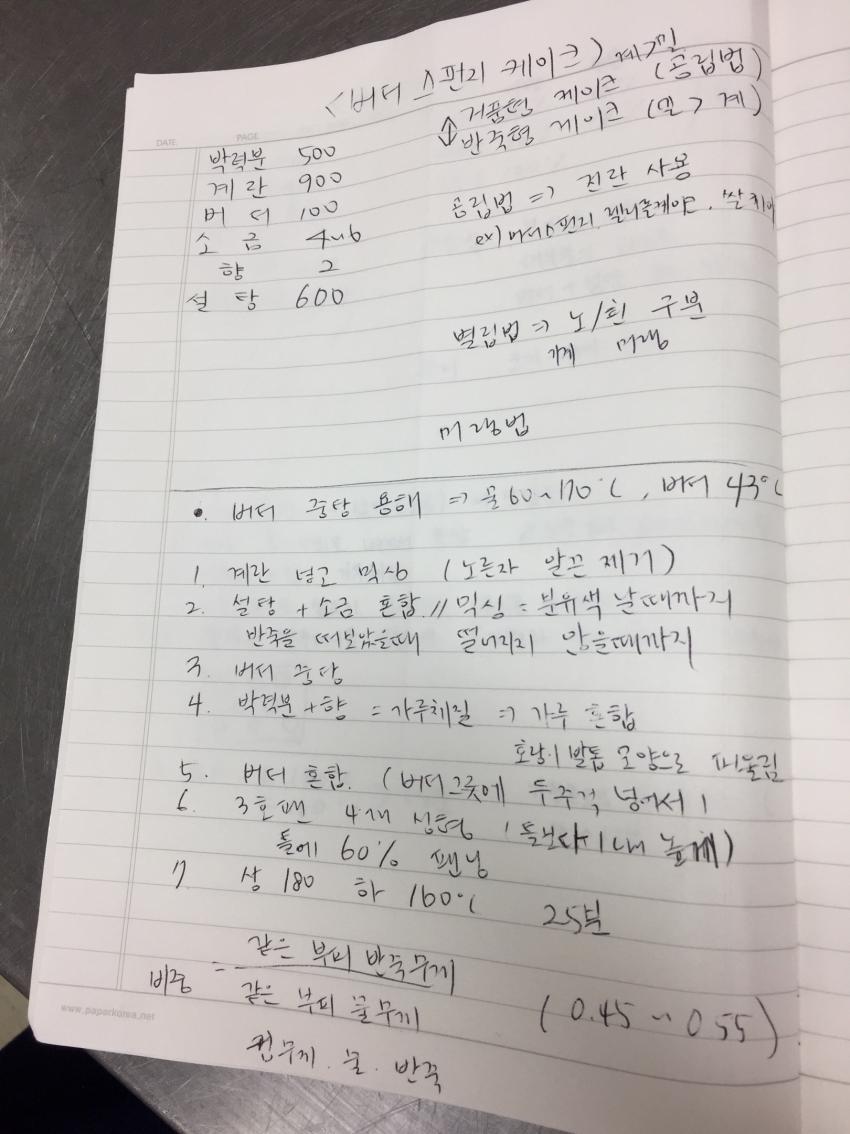 <버터 스펀지 케이크> 제2밀
DATE. PAGE
↕ 거품형 케이크 (공립법)
반죽형 케이크 (밀 > 계)
박력분 500
계란 900
버터 100
소금 4~6
향 2
설탕 600
공립법 => 전란 사용
ex) 버터스펀지, 젤리롤케이크,
별립법 => 노/흰 구분
가께 머랭
머랭법
• 버터 중탕 용해 => 물 60~170°C, 버터 43°C
1. 계란 넣고 믹싱 (노른자 알끈 제거)
2. 설탕 + 소금 혼합 // 믹싱 = 분유색 날때까지
반죽을 떠보았을때 떨어지지 않을때까지
3. 버터 중탕
4. 박력분 + 향 = 가루체질 => 가루 혼합
호랑이 발톱 모양으로 퍼올림
5. 버터 혼합. (버터그릇에 두주걱 넣어서)
6. 3호팬 4개 성형 (틀보다 1cm 높게)
틀에 60% 팬닝
7 상 180 하 160°C 25분
비중 = 같은 부피 반죽무게
같은 부피 물무게 (0.45~0.55)
컵무게. 물. 반죽
www.paperkorea.net